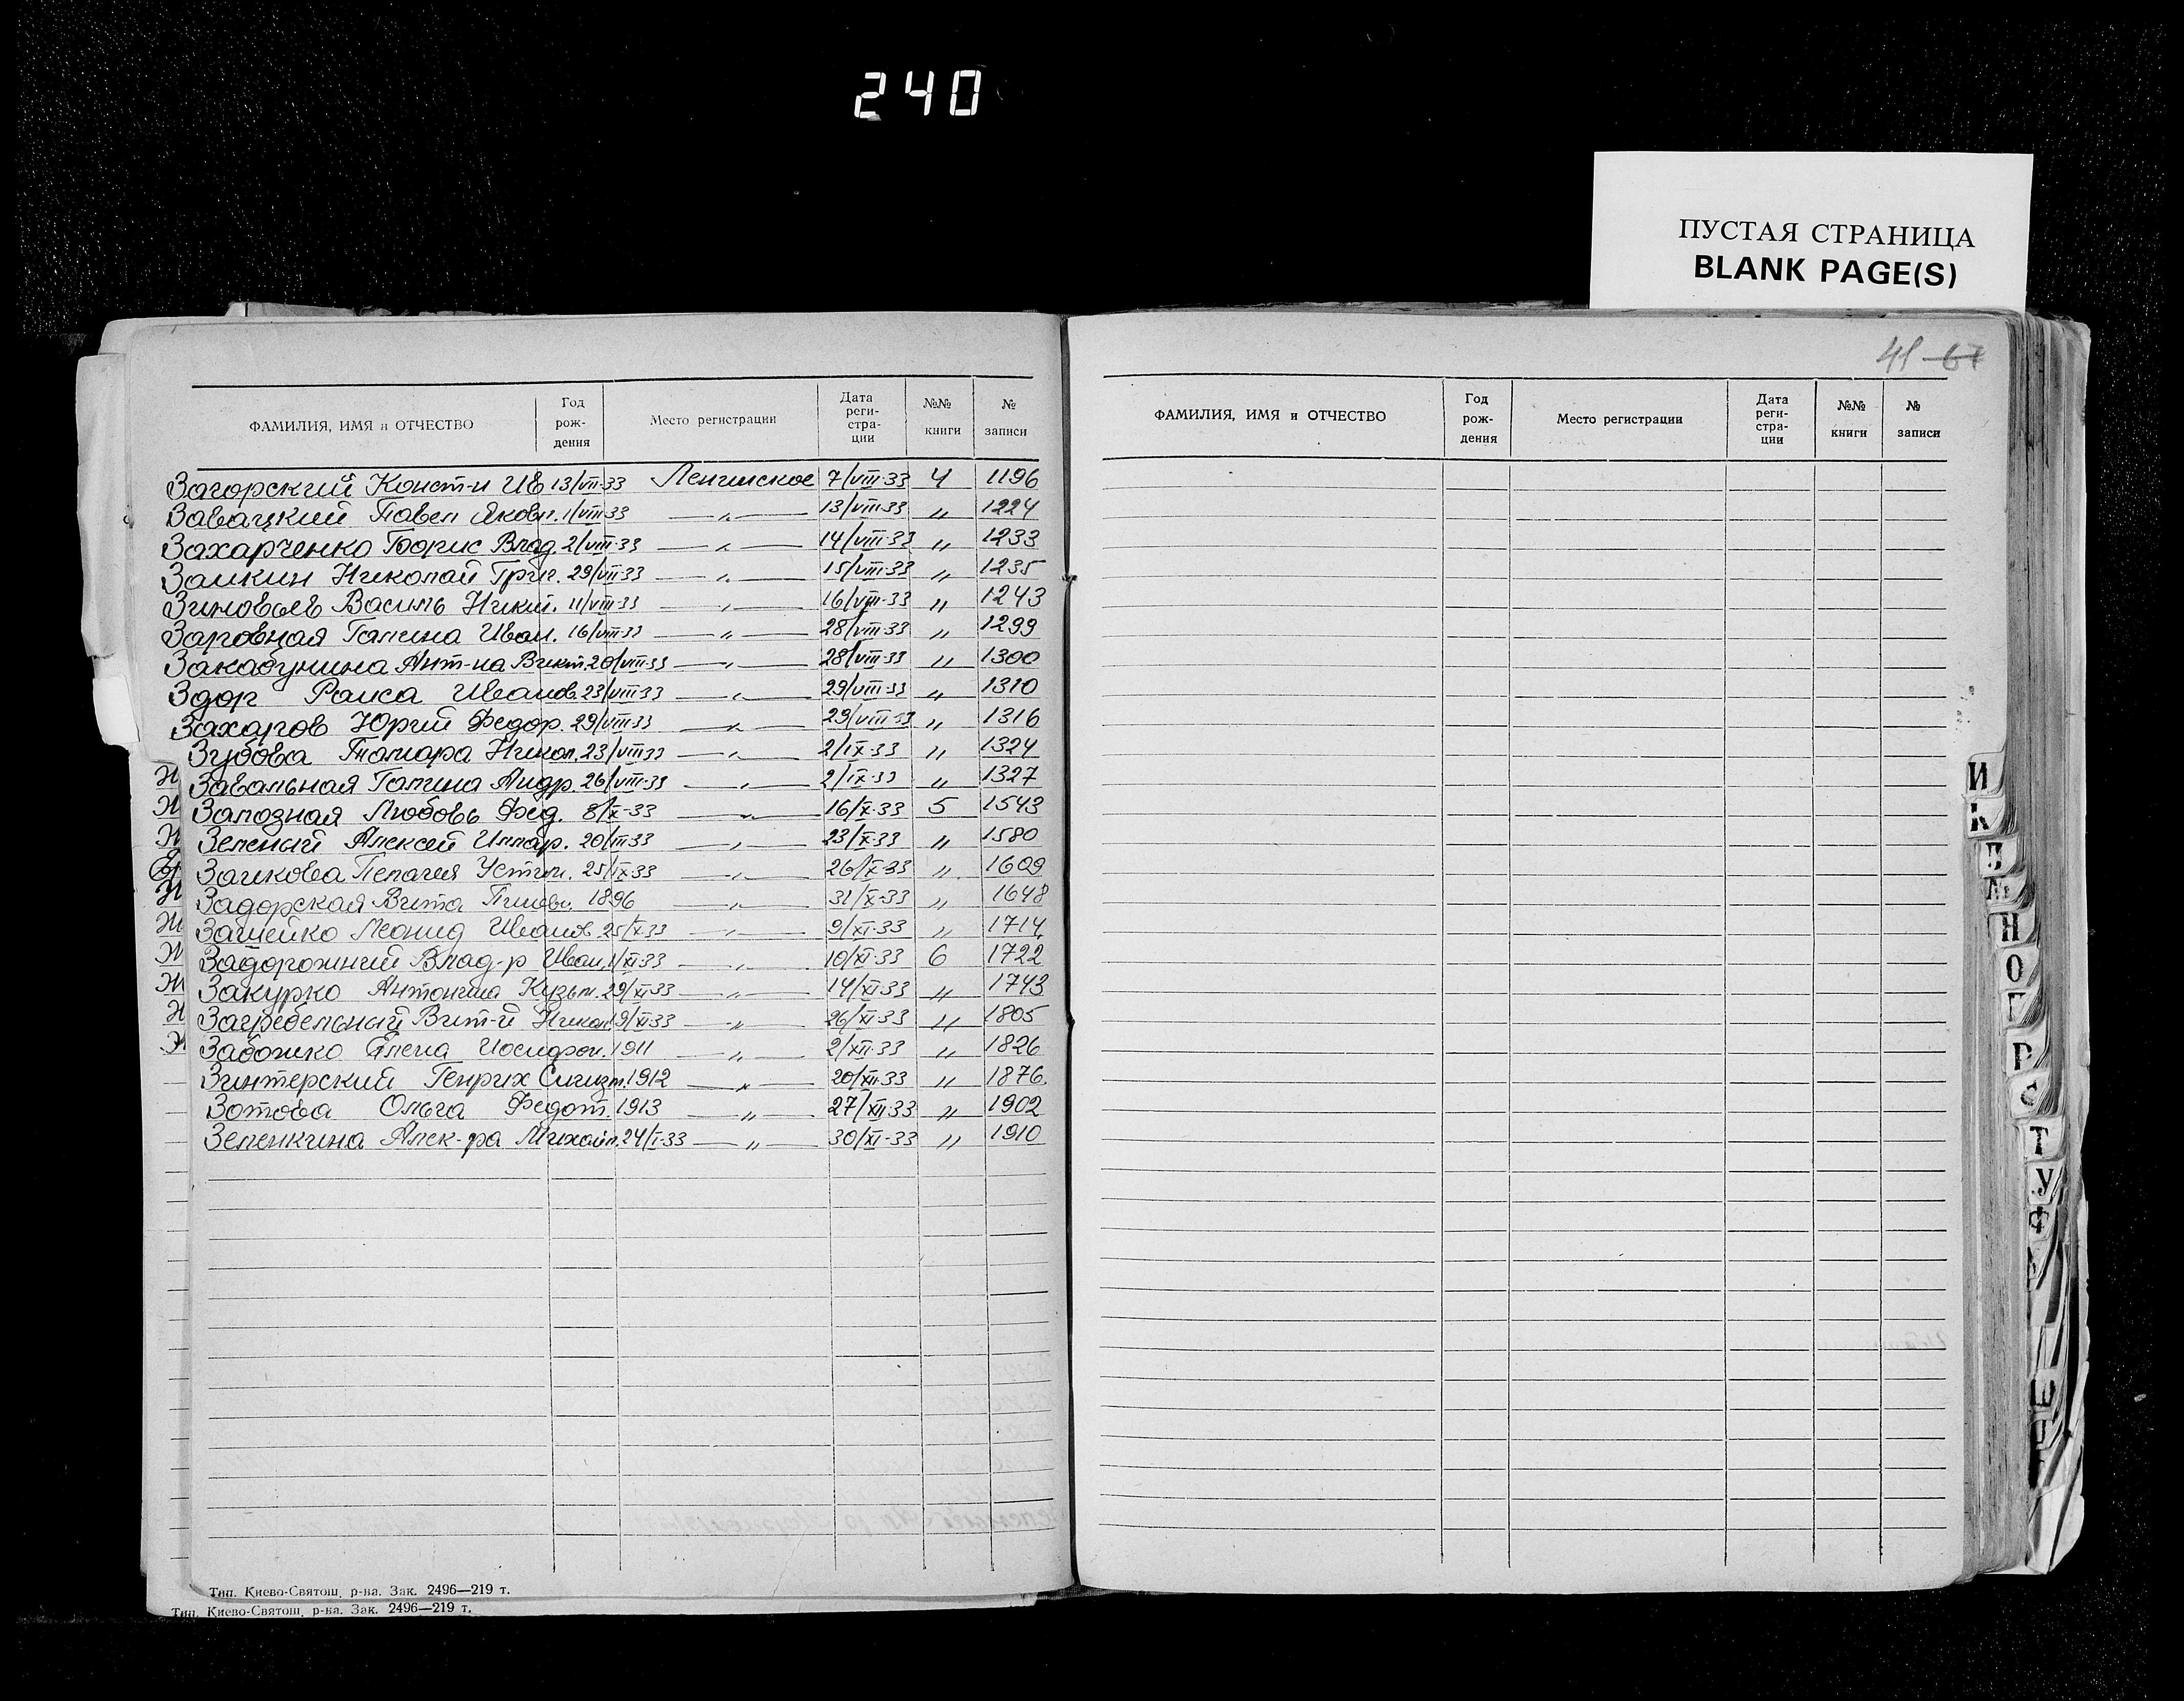 240
ПУСТАЯ СТРАНИЦА
BLANK PAGE(S)
41 67
ФАМИЛИЯ, ИМЯ и ОТЧЕСТВО Год рож- дения Место регистрации Дата реги- стра- ции №№ книги № записи
Загорский Конст-н Ив 13/VII-33 Ленинское 7/VIII-33 4 1196
Завацкий Павел Яковл. 1/VIII-33 —„— 13/VIII-33 „ 1224
Захарченко Борис Влад. 2/VIII-33 —„— 14/VIII-33 „ 1233
Заикин Николай Григ. 29/VII-33 —„— 15/VIII-33 „ 1235
Зиновьев Василь Никит. 11/VIII-33 —„— 16/VIII-33 „ 1243
Галина Иван. 16/VIII-33 —„— 28/VIII-33 „ 1299
Ант-на Викт. 20/VIII-33 —„— 28/VIII-33 „ 1300
Здор Раиса Иванов. 23/VIII-33 —„— 29/VIII-33 „ 1310
Захаров Юрий Федор. 29/VIII-33 —„— 29/VIII-33 „ 1316
Зубова Тамара Никол. 23/VIII-33 —„— 2/IX-33 „ 1324
Завальная Галина Андр. 26/VIII-33 —„— 2/IX-33 „ 1327
Любовь Фед. 8/X-33 —„— 16/X-33 5 1543
Зеленый Алексей Иллар. 20/III-33 —„— 23/X-33 „ 1580
Заикова Пелагея Устин. 25/IX-33 —„— 26/X-33 „ 1609
Задорская Вита 1896 —„— 31/X-33 „ 1648
Леонид Иванов. 25/X-33 —„— 9/XI-33 „ 1714
Задорожний Влад-р Иван. 1/XI-33 —„— 10/XI-33 6 1722
Закурко Антонина Кузьм. 29/XI-33 —„— 14/XI-33 „ 1743
Загребельный Вит-й Никол. 19/XI-33 —„— 26/XI-33 „ 1805
Забожко Елена Иосифов. 1911 —„— 2/XII-33 „ 1826
Зинтерский Генрих Сигизм. 1912 —„— 20/XII-33 „ 1876
Зотова Ольга Федот. 1913 —„— 27/XII-33 „ 1902
Зеленкина Алек-ра Михайл. 24/I-33 —„— 30/XI-33 „ 1910
Тип. Киево-Святош. р-на. Зак. 2496—219 т.
Тип. Киево-Святош. р-на. Зак. 2496—219 т.
ФАМИЛИЯ, ИМЯ и ОТЧЕСТВО Год рож- дения Место регистрации Дата реги- стра- ции №№ книги № записи
И
К
Н
О
Р
С
Т
У
Ф